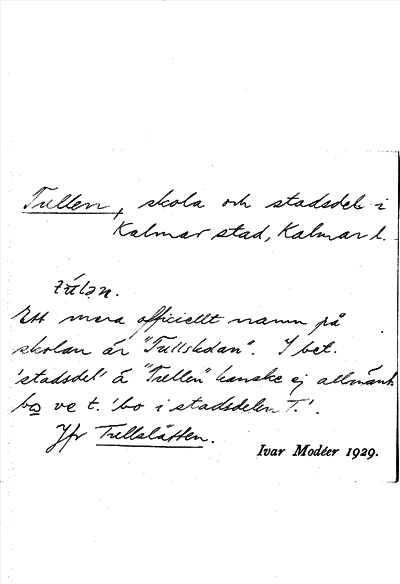 Tullen, skola och stadsdel i
Kalmar stad, Kalmar l.
Ett mera officiellt namn på
skolan är "Tullskolan". I bet.
'stadsdel' ä "Tullen" kanske ej allmänt
bo ve t. 'bo i stadsdelen T.'.
Jfr Tullslätten.
Ivar Modéer 1929.